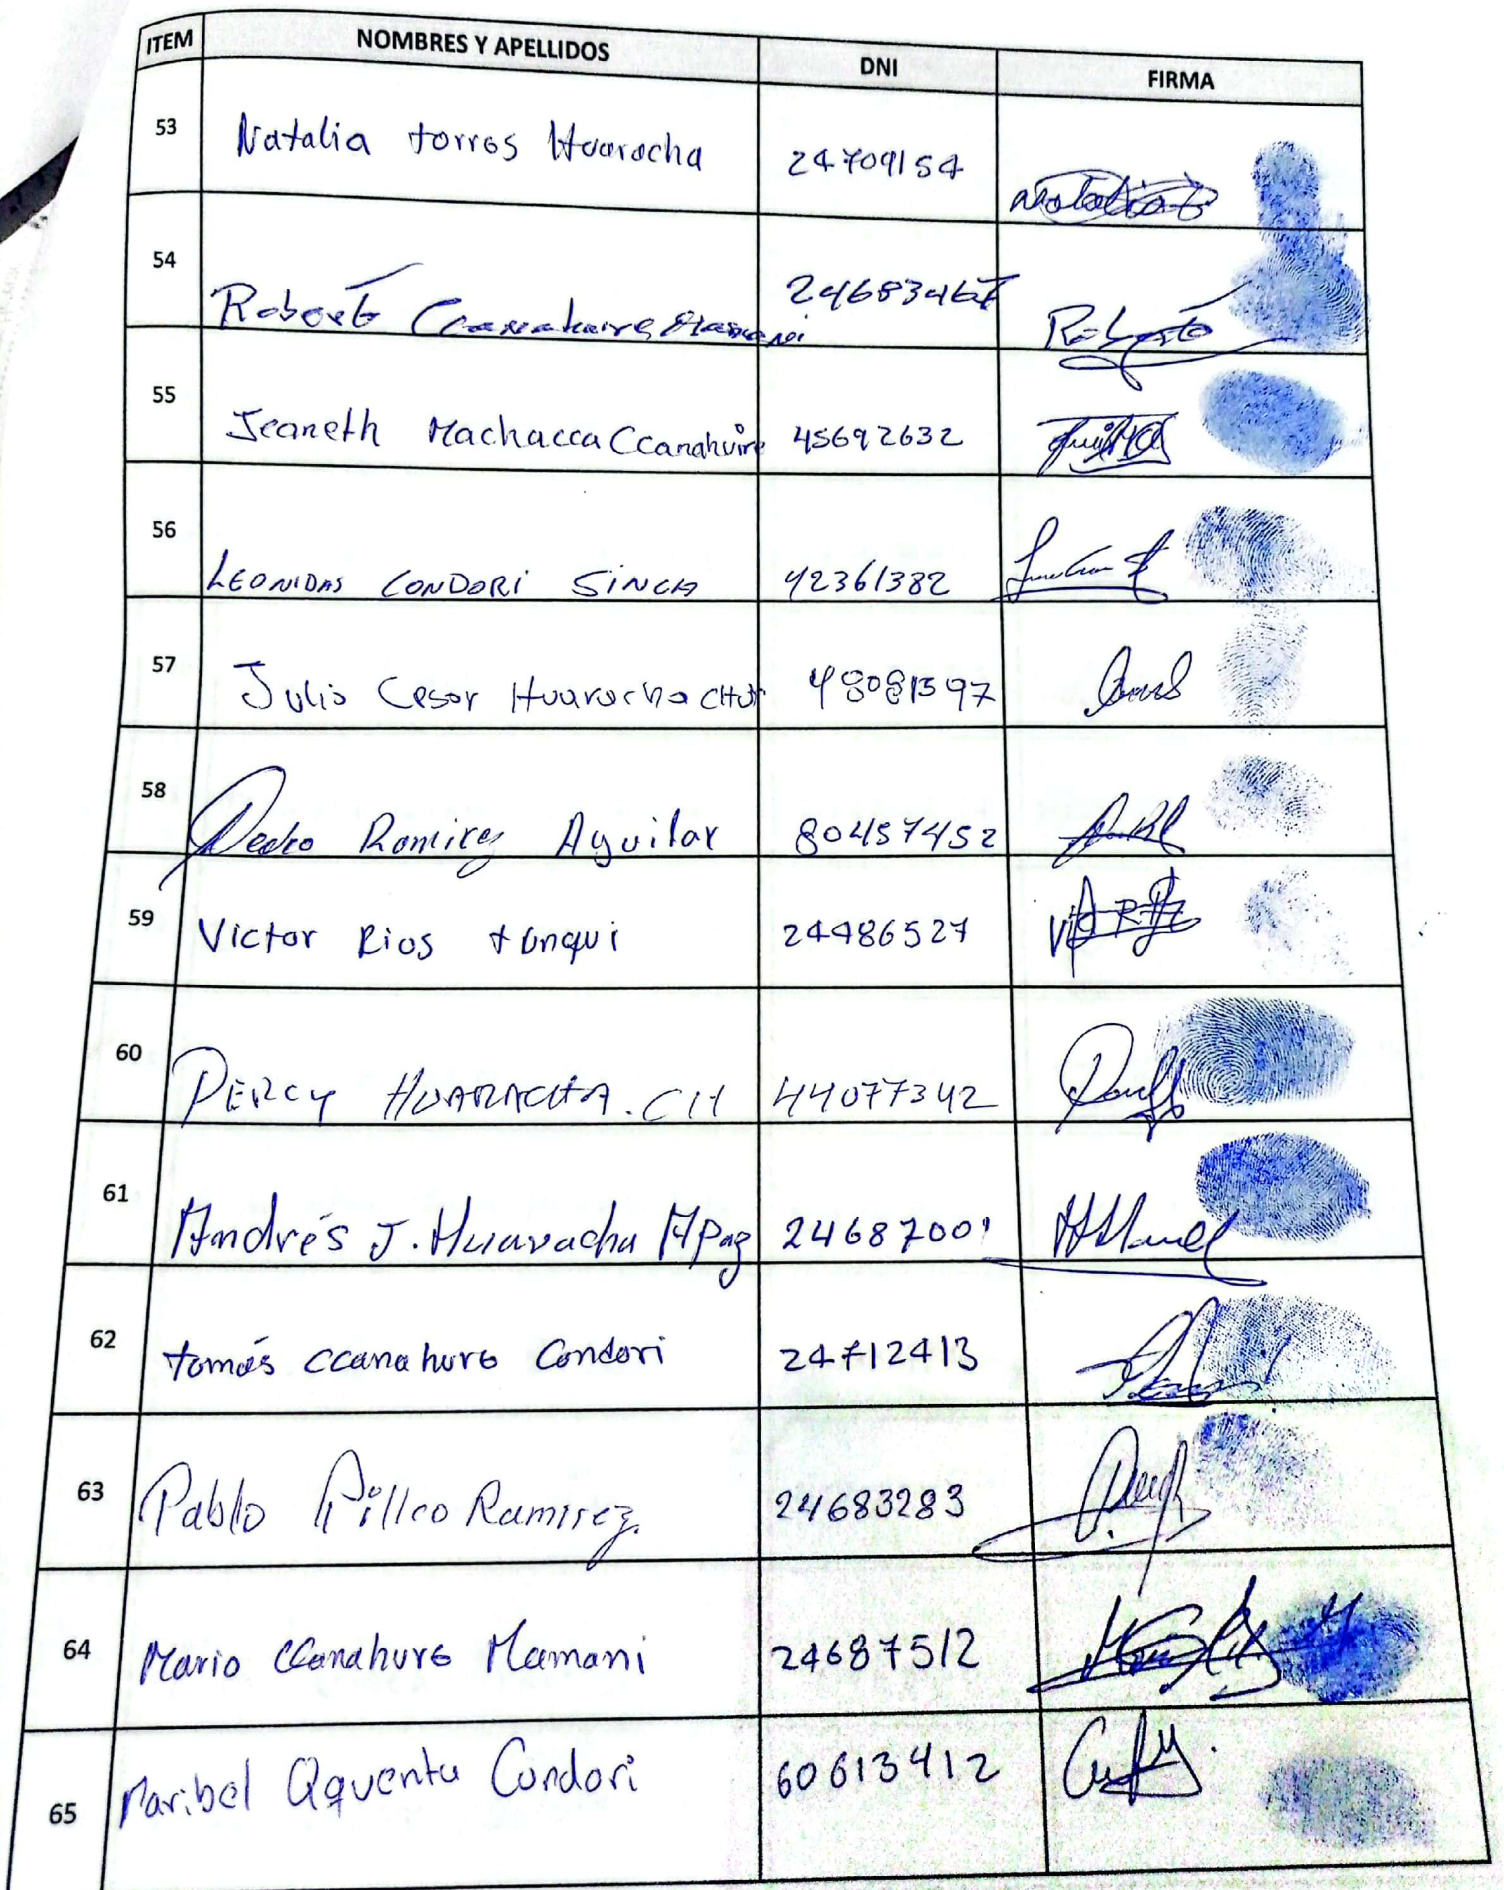 ITEM NOMBRES Y APELLIDOS DNI FIRMA
53 Natalia torres Huaracha 24709154
54 Roberto Ccanahuire Mamani 24683467 Roberto
55 Jeaneth Machacca Ccanahuire 45692632
56 LEONIDAS CONDORI SINCA 42361382
57 Julio Cesar Huaracha CHU 48081597
58 Pedro Ramirez Aguilar 80457452
59 Victor Rios tunqui 24486527
60 PERCY HUARACHA. CH 44077342
61 Andrés J. Huaracha Apaz 24687001
62 tomás ccanahure Condori 24712413
63 Pablo Pillco Ramirez. 24683283
64 Mario Ccanahure Mamani 24687512
65 Maribel Qquenta Condori 60613412